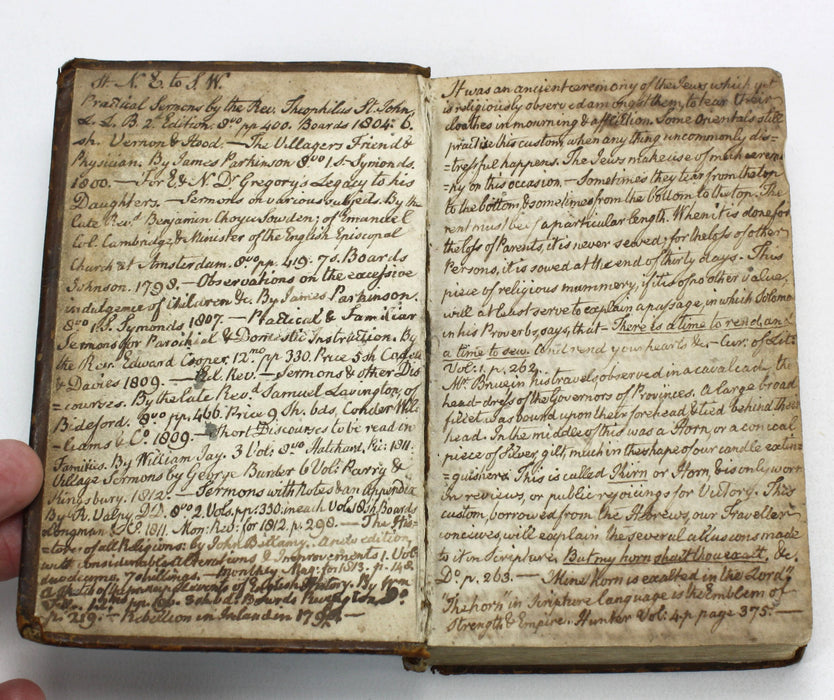 St. N. & to S. W.
Practical Sermons by the Rev. Theophilus St. John
L. L. B. 2d Edition. 8vo pp 400. Boards 1804. 6.
sh. Vernon & Hood. — The Villagers Friend &
Physician. By James Parkinson 8vo 1 s. Symonds.
1800. — For & N. Dr Gregory's Legacy to his
Daughters. — Sermons on various subjects. By the
late Revd Benjamin Choyce Sowden; of Emanuel
Col. Cambridge & Minister of the English Episcopal
Church at Amsterdam. 8vo pp. 419. 7s. Boards
Johnson. 1798. — Observations on the excessive
indulgence of Children &c. By James Parkinson.
8vo 1 s. Symonds 1807. — Practical & Familiar
Sermons for Parochial & Domestic Instruction. By
the Rev. Edward Cooper 12mo pp 330. Price 5 sh Cadell
& Davies 1809. — Ed. Rev. — Sermons & other Dis
=courses. By the late Revd Samuel Lavington, of
Bideford. 8vo pp. 466. Price 9 Sh. bds, Conder Wil
liams & Co 1809. — Short Discourses to be read in
Families. By William Jay. 3 Vol: 8vo Hatchard, Pic: 1811.
Village Sermons by George Burder 6 Vol: Parry &
Kingsbury. 1812. — Sermons with Notes & an appendix
By R. Valpy D.D. 8vo 2 Vols, pp: 330. in each Vol. 18 sh Boards
Longman & Co 1811. Mon: Rev: for 1812. p. 298. — The His
tory of all Religions: by John Bellamy. A new edition,
with considerable alterations & Improvements 1. Vol:
duodecimo. 7 shillings. — Monthly Mag: for 1813. p. 148.
of English History. By
12mo pp. 3 sh. bds: Boards
p. 219. — Rebellion in Ireland in
It was an ancient ceremony of the Jews which yet
is religiously observed amongst them, to tear their
cloathes in mourning & affliction. Some Orientals still
practise this custom, when any thing uncommonly dis=
=tressful happens. The Jews make use of much ceremo
=ny on this occasion. — Sometimes they tear from the top
to the bottom, & sometimes from the bottom to the top. The
rent must be of a particular length. When it is done for
the loss of Parents, it is never sewed; for the loss of other
Persons, it is sowed at the end of thirty days. This
piece of religious mummery, if it is of no other value,
will at least serve to explain a passage, in which Solomon
in his Proverbs, says, that — There is a time to rend, and
a time to sew. And rend your hearts &c — Cur. of Lit:
Vol: 1. p. 262.
Mr. Bruce in his travels observed in a cavalcade, the
head-dress of the Governors of Provinces. A large broad
fillet was bound upon their forehead & tied behind their
head. In the middle of this was a Horn, or a conical
piece of Silver, gilt, much in the shape of our candle extin=
=guishers. This is called Kirn or Horn, & is only worn
in reviews, or public rejoicings for Victory. This
custom, borrowed from the Hebrews, our Traveller
conceives, will explain the several allusions made
to it in Scripture. But my horn shalt thou exalt, &c.
Do. p. 263. — Mine Horn is exalted in the Lord"
"The horn" in Scripture language is the Emblem of
Strength & Empire. Hunter Vol: 4. p page 375. —